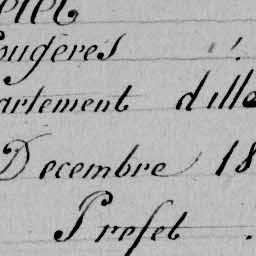 ougeres
artement dille
Decembre 18
Prefet.